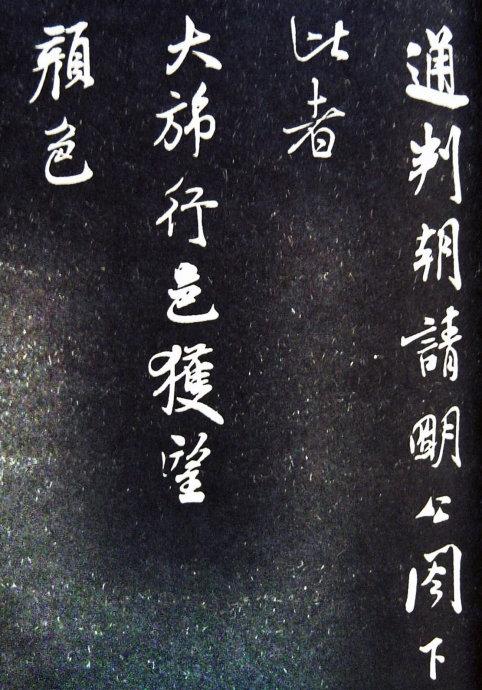 通判朝請明公閤下
此者
大旆行邑獲望
顏色